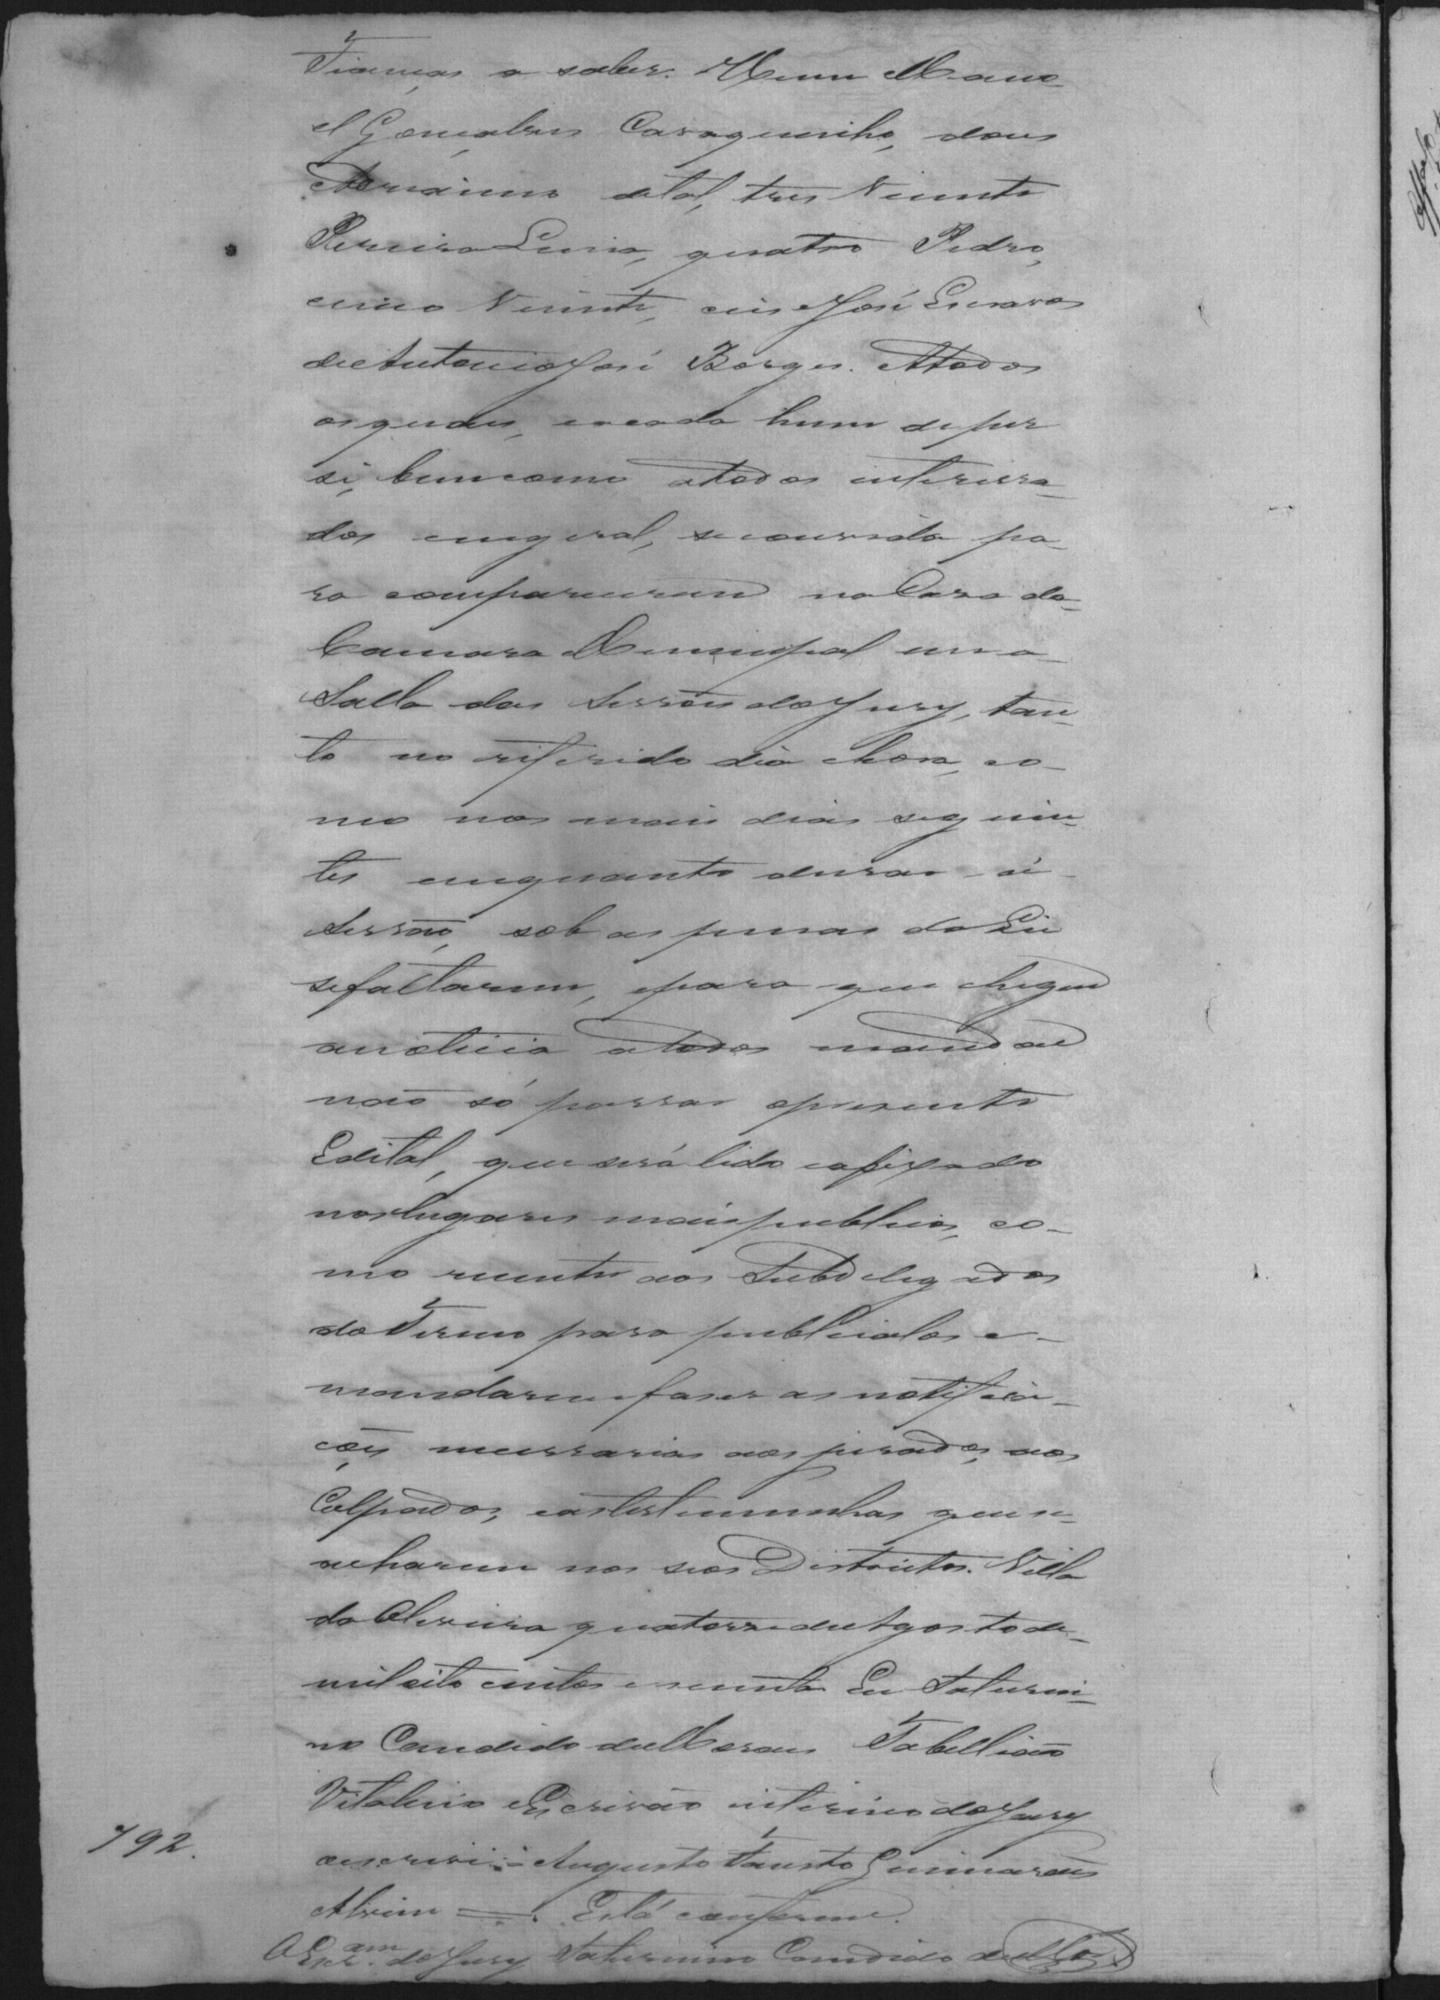 Fianças a saber. Hum Mano
el Gonçalves Caraquinho, dous
Maximo de tal, tres Vicente
Pereira Lima, quatro Pedro,
cinco Vicente, eis José Escravos
de Antonio José Borges. A todos
os quaes, e a cada hum de per
si, bem como a todos interessa-
dos em geral, se convida pa-
ra comparecerem na Casa da
Camara Municipal em a
Salla das Sessões do Jury, tan-
to no referido dia e hora, co-
mo nos mais dias seguin-
tes emquanto durar a
Sessão, sob as penas da Lei
se faltarem, e para que chegue
a noticia a todos mandou
não só passar o presente
Edital, que será lido e afixado
nos lugares mais publicos, co-
mo remetter aos Subdelegados
do Termo para publicalos e
mandarem faser as notifica-
ções necessarias aos jurados, aos
Culpados, e as testemunhas que se
acharem nos seos Districtos. Villa
da Oliveira quatorse de Agosto de
mil oito centos e secenta Eu Saturni-
no Candido de Moraes Tabellião
Vitalicio Escrivão interino do Jury
o escrivi = Augusto Fausto Guimarães
Alvim =. Está conforme.
O Escr.am do Jury Saturnino Candido de
792.